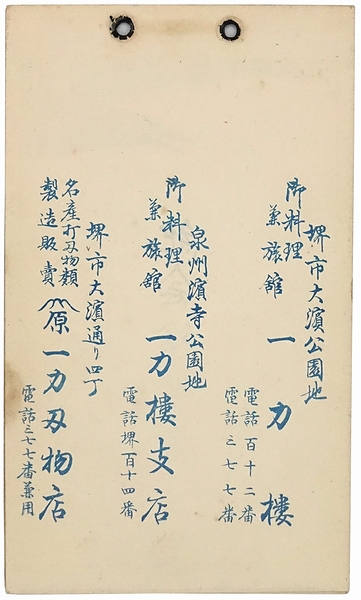 堺市大濱公園地
御料理
兼旅舘
一力樓
電話百十二番
電話三七七番
泉州濱寺公園地
御料理
兼旅舘
一力樓支店
電話堺百十四番
堺市大濱通り四丁
名産打刃物類
製造販賣
原
一力刃物店
電話三七七番兼用